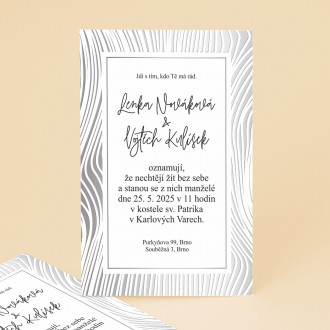 Jdi s tím, kdo Tě má rád.
Lenka Nováková
&
Vojtěch Kulíšek
oznamují,
že nechtějí žít bez sebe
a stanou se z nich manželé
dne 25. 5. 2025 v 11 hodin
v kostele sv. Patrika
v Karlových Varech.
Purkyňova 99, Brno
Souběžná 3, Brno
rád.
Nováková
&
Kulíšek